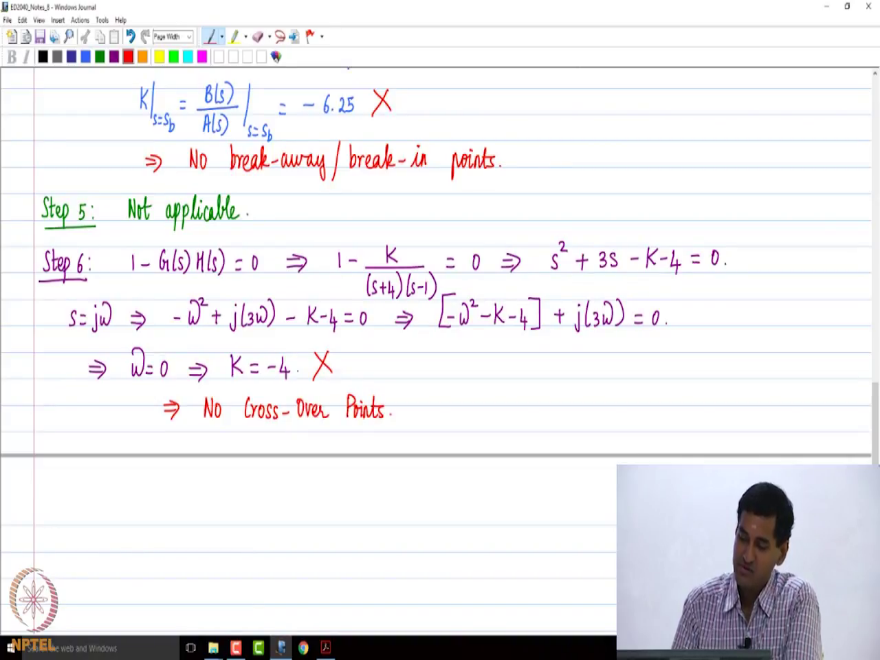 ED2040_Notes_8 - Windows Journal
File Edit View Insert Actions Tools Help
Page Width
B I
K|s=sb = B(s)/A(s)|s=sb = - 6.25 X
⇒ No break-away/break-in points.
Step 5: Not applicable.
Step 6: 1 - G(s)H(s) = 0 ⇒ 1 - K/((s+4)(s-1)) = 0 ⇒ s² + 3s - K - 4 = 0.
s = jω ⇒ -ω² + j(3ω) - K - 4 = 0 ⇒ [-ω² - K - 4] + j(3ω) = 0.
⇒ ω = 0 ⇒ K = -4. X
⇒ No Cross-Over Points.
NPTEL the web and Windows